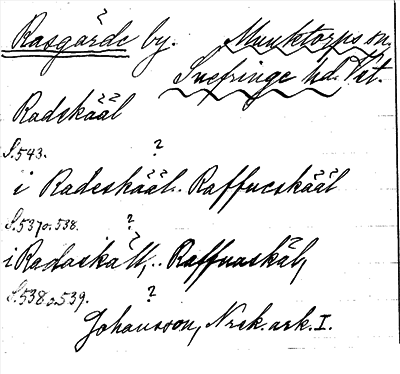 Rasgärde by. Munktorps sn,
Snefringe hd. Vst.
Radzkääl
S. 543.
i Radeskääl.. Raffucskääl
S. 537 o. 538.
i Radaskall,.. Raffnaskäl,
S. 538 o. 539.
Johansson, Nrsk. ark. I.